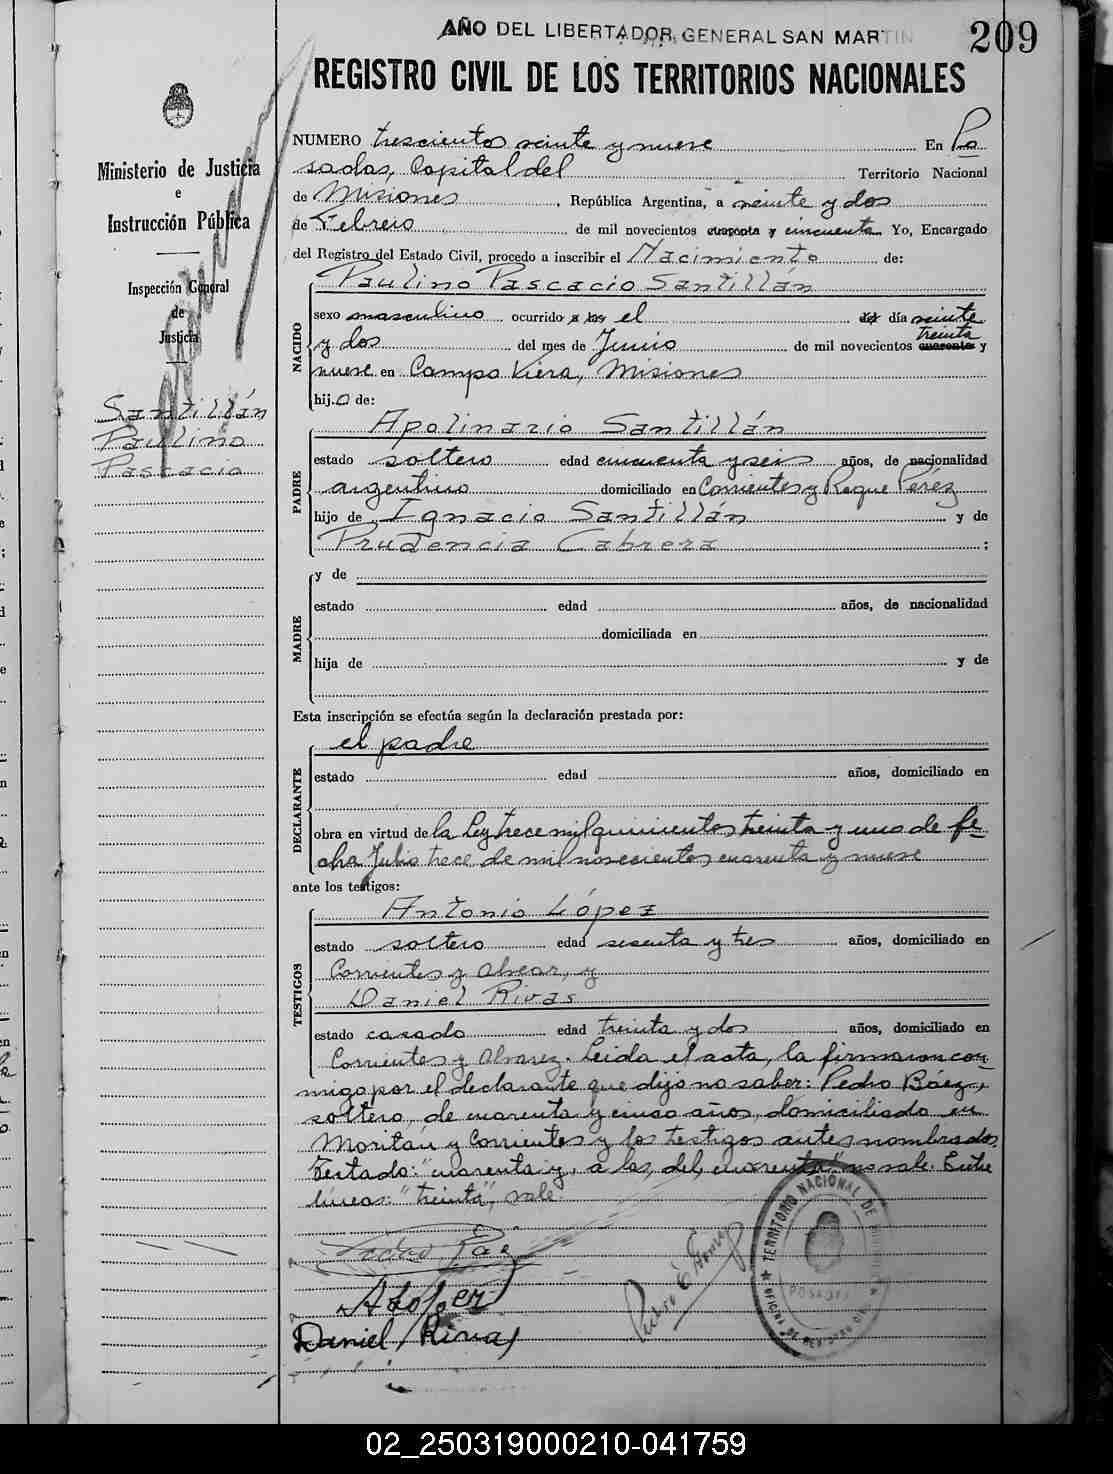 AÑO DEL LIBERTADOR GENERAL SAN MARTIN
209
REGISTRO CIVIL DE LOS TERRITORIOS NACIONALES
Ministerio de Justicia
e
Instrucción Pública
Inspección General
de
Justicia
Santillán
Paulino
Pascacio
NUMERO trescientos veinte y nueve En Po
sadas, Capital del Territorio Nacional
de Misiones, República Argentina, a veinte y dos
de Febrero de mil novecientos cuarenta y cincuenta Yo, Encargado
del Registro del Estado Civil, procedo a inscribir el Nacimiento de:
NACIDO
Paulino Pascacio Santillán
sexo masculino ocurrido a las el del día veinte
treinta
y dos del mes de Junio de mil novecientos cuarenta y
nueve en Campo Viera, Misiones
hijo de:
PADRE
Apolinario Santillán
estado soltero edad cincuenta y seis años, de nacionalidad
argentino domiciliado en Corrientes y Roque Pérez
hijo de Ignacio Santillán y de
Prudencia Cabrera ;
MADRE
y de
estado edad años, de nacionalidad
domiciliada en
hija de y de
Esta inscripción se efectúa según la declaración prestada por:
DECLARANTE
el padre
estado edad años, domiciliado en
obra en virtud de la Ley trece mil quinientos treinta y uno de fe-
cha Julio trece de mil novecientos cuarenta y nueve
ante los testigos:
TESTIGOS
Antonio López
estado soltero edad sesenta y tres años, domiciliado en
Corrientes y Alvear, y
Daniel Rivas
estado casado edad treinta y dos años, domiciliado en
Corrientes y Alvarez. Leida el acta, la firmaron con-
migo por el declarante que dijo no saber: Pedro Báez,
soltero, de cuarenta y cinco años, domiciliado en
Moritán y Corrientes y los testigos antes nombrados.
Testado: "cuarenta y, a las, del, cuarenta" no vale. Entre
lineas: "treinta", vale.
Pedro Báez
A López
Daniel Rivas
TERRITORIO NACIONAL DE MISIONES
POSADAS
02_250319000210-041759